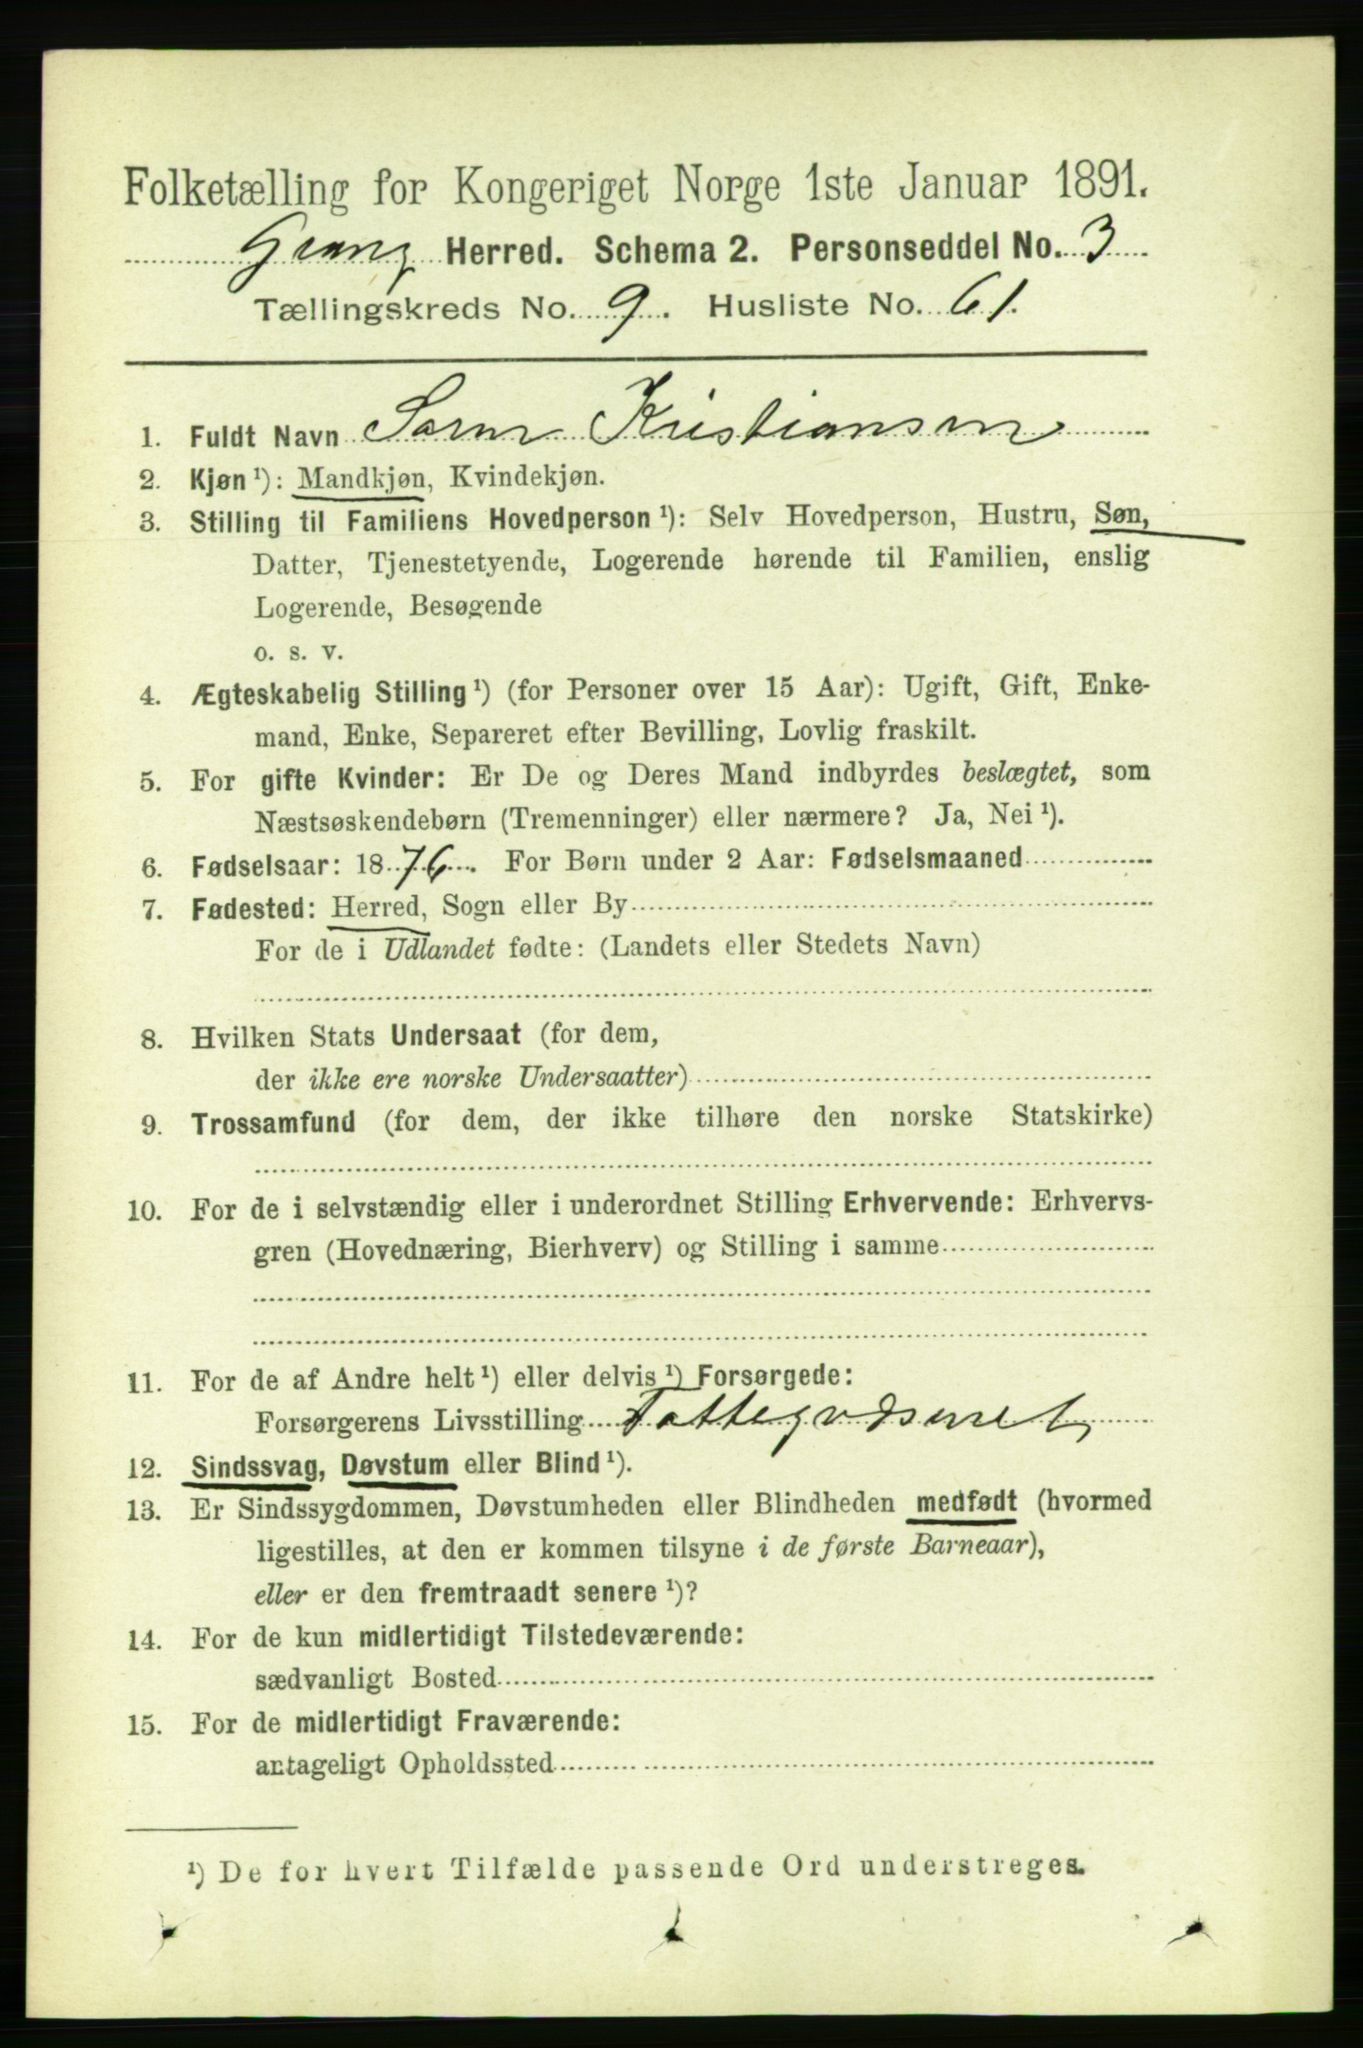 Folketælling for Kongeriget Norge 1ste Januar 1891.
Herred. Schema 2. Personseddel No. 3
Tællingskreds No. 9. Husliste No. 61.
1. Fuldt Navn Søren Kristiansen
2. Kjøn ¹): Mandkjøn, Kvindekjøn.
3. Stilling til Familiens Hovedperson ¹): Selv Hovedperson, Hustru, Søn,
Datter, Tjenestetyende, Logerende hørende til Familien, enslig
Logerende, Besøgende
o. s. v.
4. Ægteskabelig Stilling ¹) (for Personer over 15 Aar): Ugift, Gift, Enke-
mand, Enke, Separeret efter Bevilling, Lovlig fraskilt.
5. For gifte Kvinder: Er De og Deres Mand indbyrdes beslægtet, som
Næstsøskendebørn (Tremenninger) eller nærmere? Ja, Nei ¹).
6. Fødselsaar: 1876. For Børn under 2 Aar: Fødselsmaaned
7. Fødested: Herred, Sogn eller By
For de i Udlandet fødte: (Landets eller Stedets Navn)
8. Hvilken Stats Undersaat (for dem,
der ikke ere norske Undersaatter)
9. Trossamfund (for dem, der ikke tilhøre den norske Statskirke)
10. For de i selvstændig eller i underordnet Stilling Erhvervende: Erhvervs-
gren (Hovednæring, Bierhverv) og Stilling i samme
11. For de af Andre helt ¹) eller delvis ¹) Forsørgede:
Forsørgerens Livsstilling Fattigvæsenet
12. Sindssvag, Døvstum eller Blind ¹).
13. Er Sindssygdommen, Døvstumheden eller Blindheden medfødt (hvormed
ligestilles, at den er kommen tilsyne i de første Barneaar),
eller er den fremtraadt senere ¹)?
14. For de kun midlertidigt Tilstedeværende:
sædvanligt Bosted
15. For de midlertidigt Fraværende:
antageligt Opholdssted
¹) De for hvert Tilfælde passende Ord understreges.